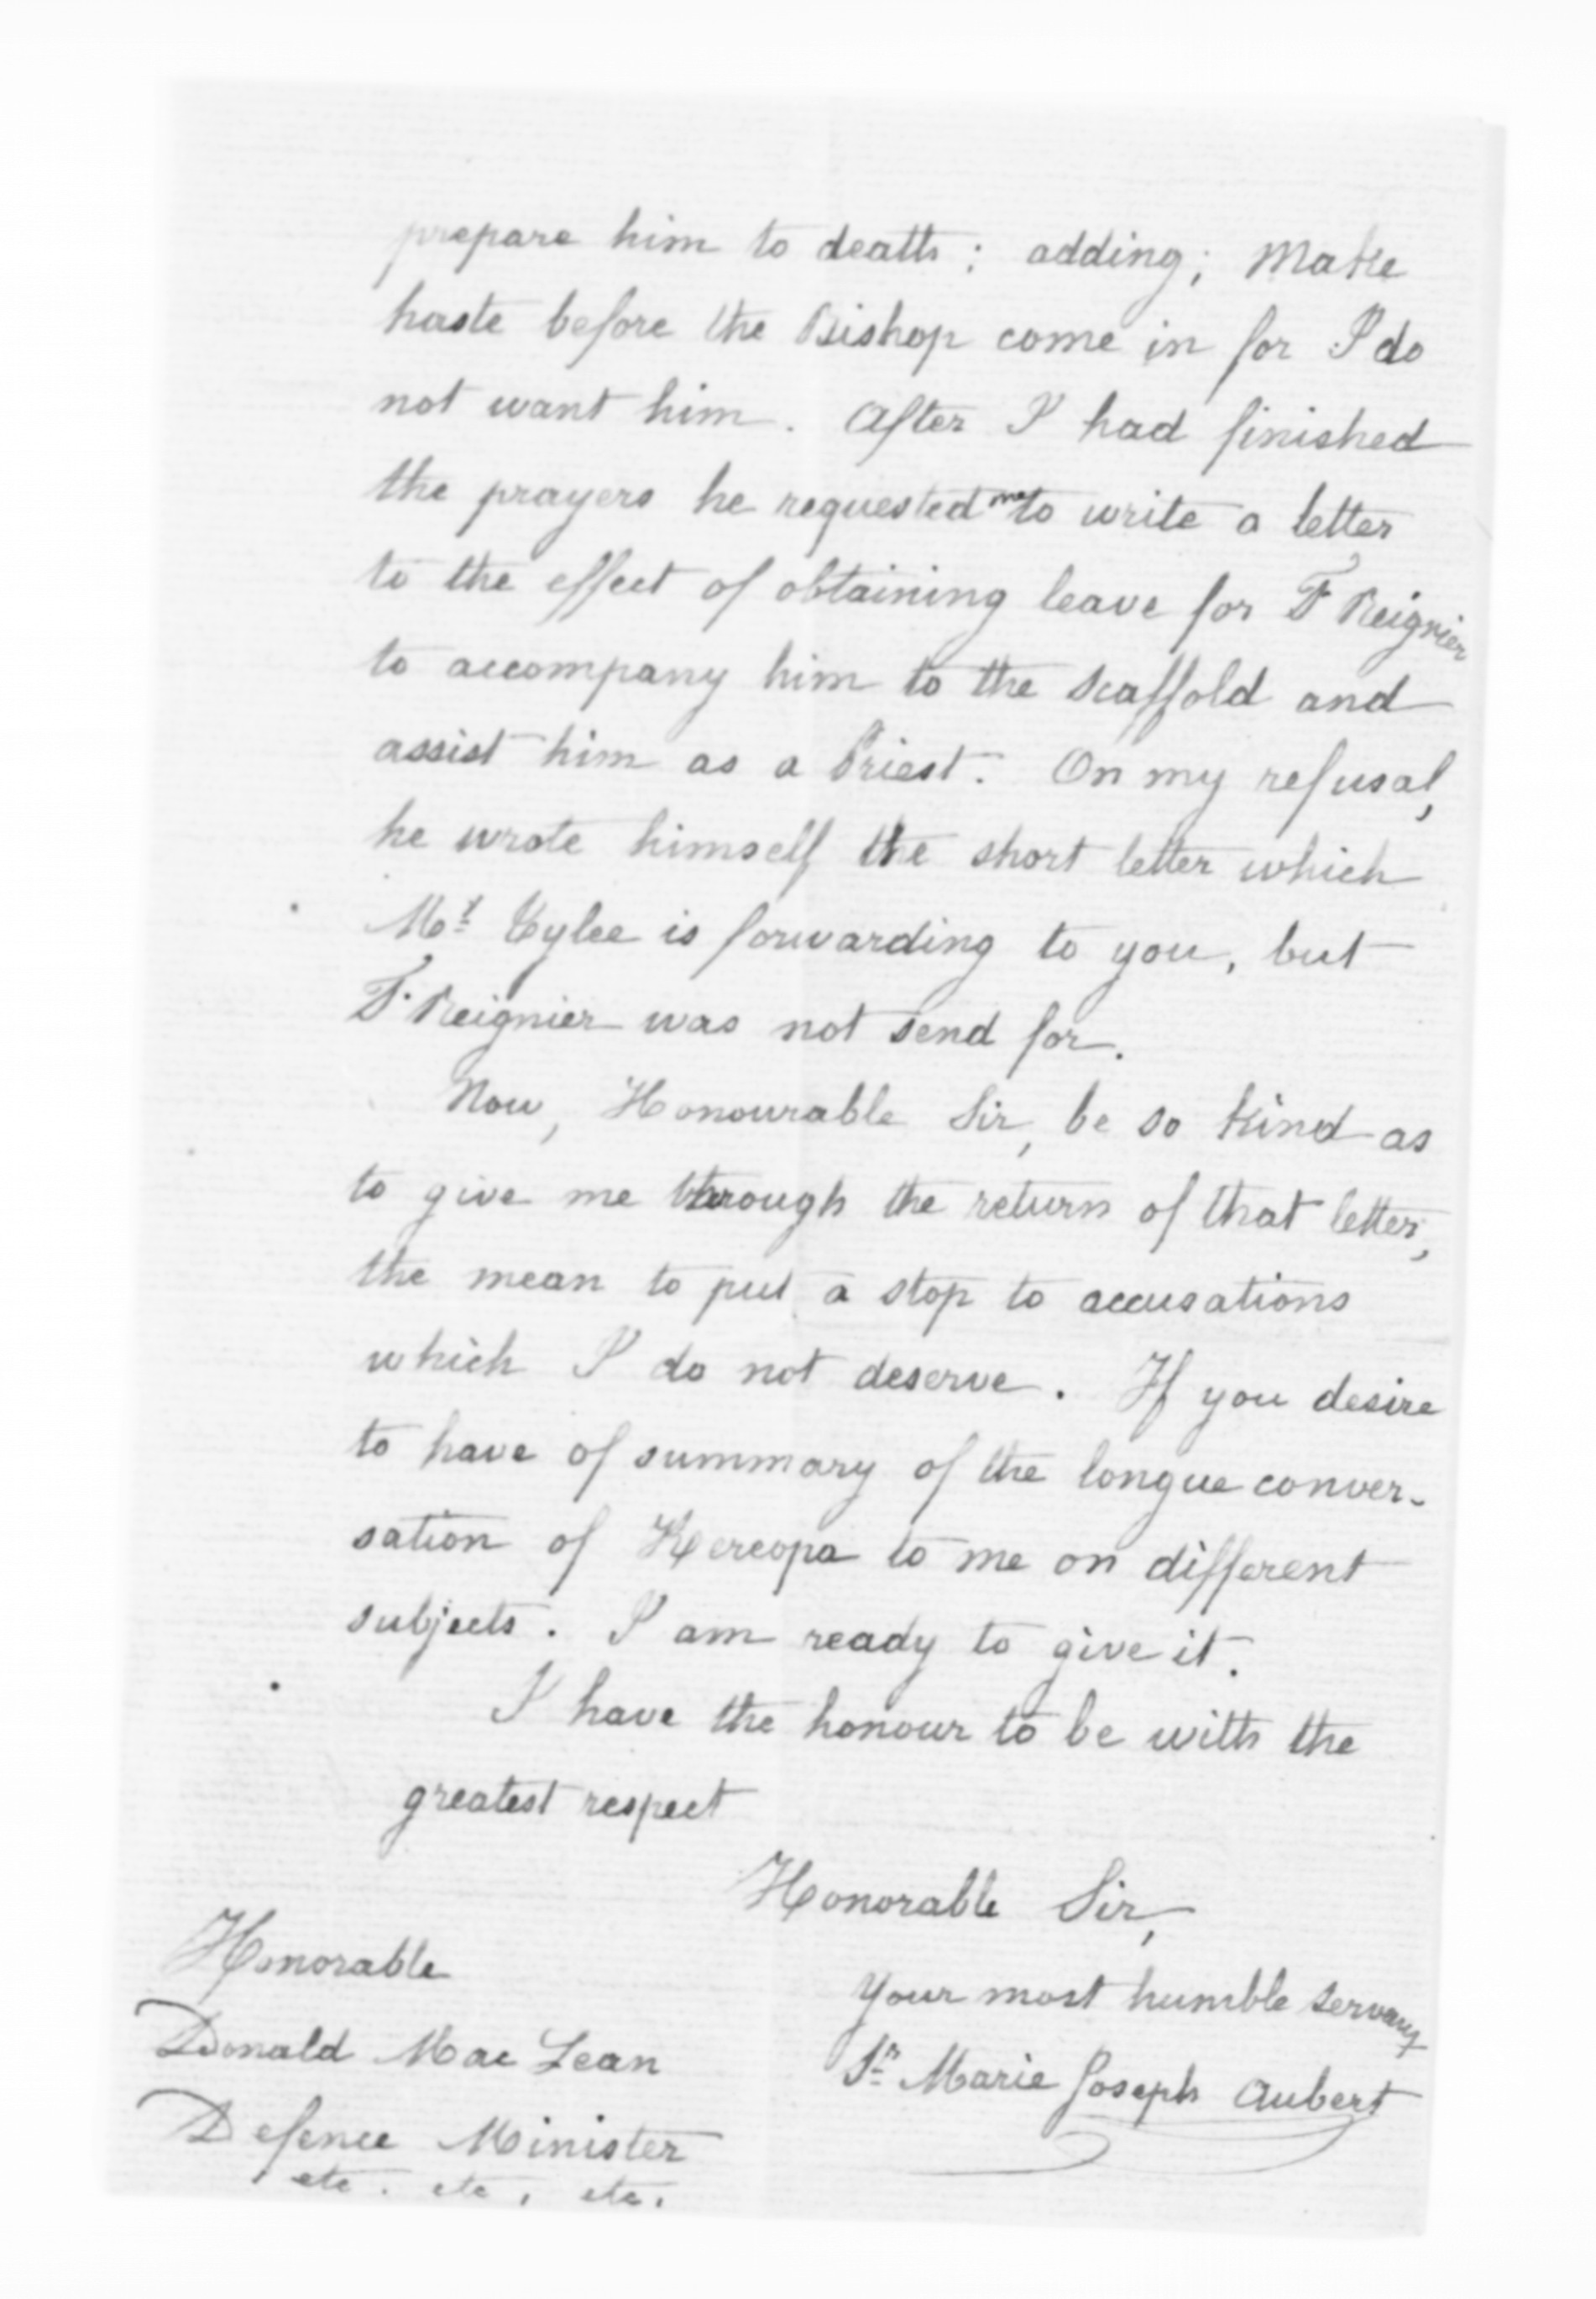 prepare him to death ; adding ; Make
haste before the Bishop come in for I do
not want him. After I had finished
the prayers he requested me to write a letter
to the effect of obtaining leave for F Reignier
to accompany him to the scaffold and
assist him as a Priest. On my refusal,
he wrote himself the short letter which
Mr Tylee is forwarding to you, but
F. Reignier was not send for.
Now, Honourable Sir, be so kind as
to give me through the return of that letter,
the mean to put a stop to accusations
which I do not deserve. If you desire
to have of summary of the longue conver-
sation of Kereopa to me on different
subjects. I am ready to give it.
I have the honour to be with the
greatest respect
Honorable Sir,
Your most humble servant
Sr Marie Joseph Aubert
Honorable
Donald Mac Lean
Defence Minister
etc. etc, etc.